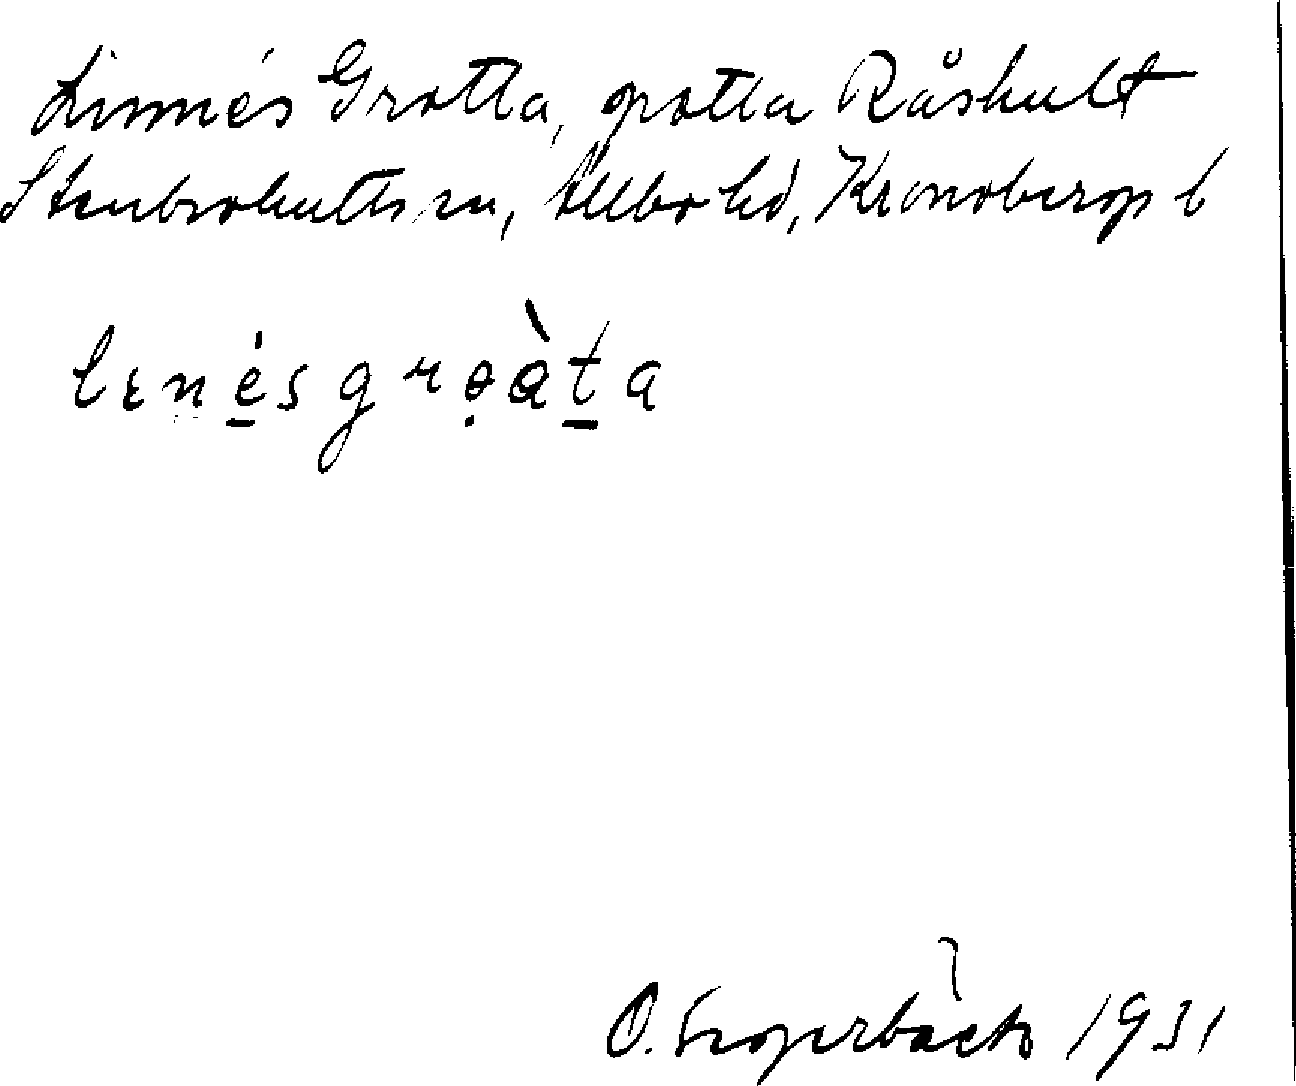 Linnés Grotta, grotta Råshult
Stenbrohults sn, Allbo hd, Kronobergs l
lɛnésgrɵàta
O. 1931